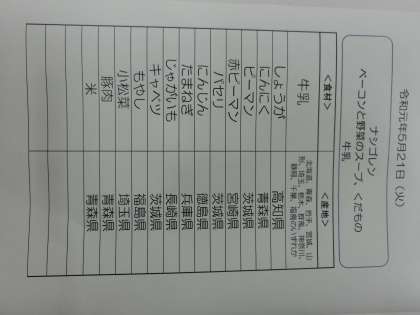 令和元年5月21日(火)
ナシゴレン
ベーコンと野菜のスープ、くだもの
牛乳
<食材> <産地>
牛乳 北海道、青森、岩手、宮城、山形、埼玉、栃木、群馬、神奈川、静岡、千葉、福島のいずれか
しょうが 高知県
にんにく 青森県
ピーマン 茨城県
赤ピーマン 宮崎県
パセリ 茨城県
にんじん 徳島県
たまねぎ 兵庫県
じゃがいも 長崎県
キャベツ 茨城県
もやし 福島県
小松菜 埼玉県
豚肉 青森県
米 青森県